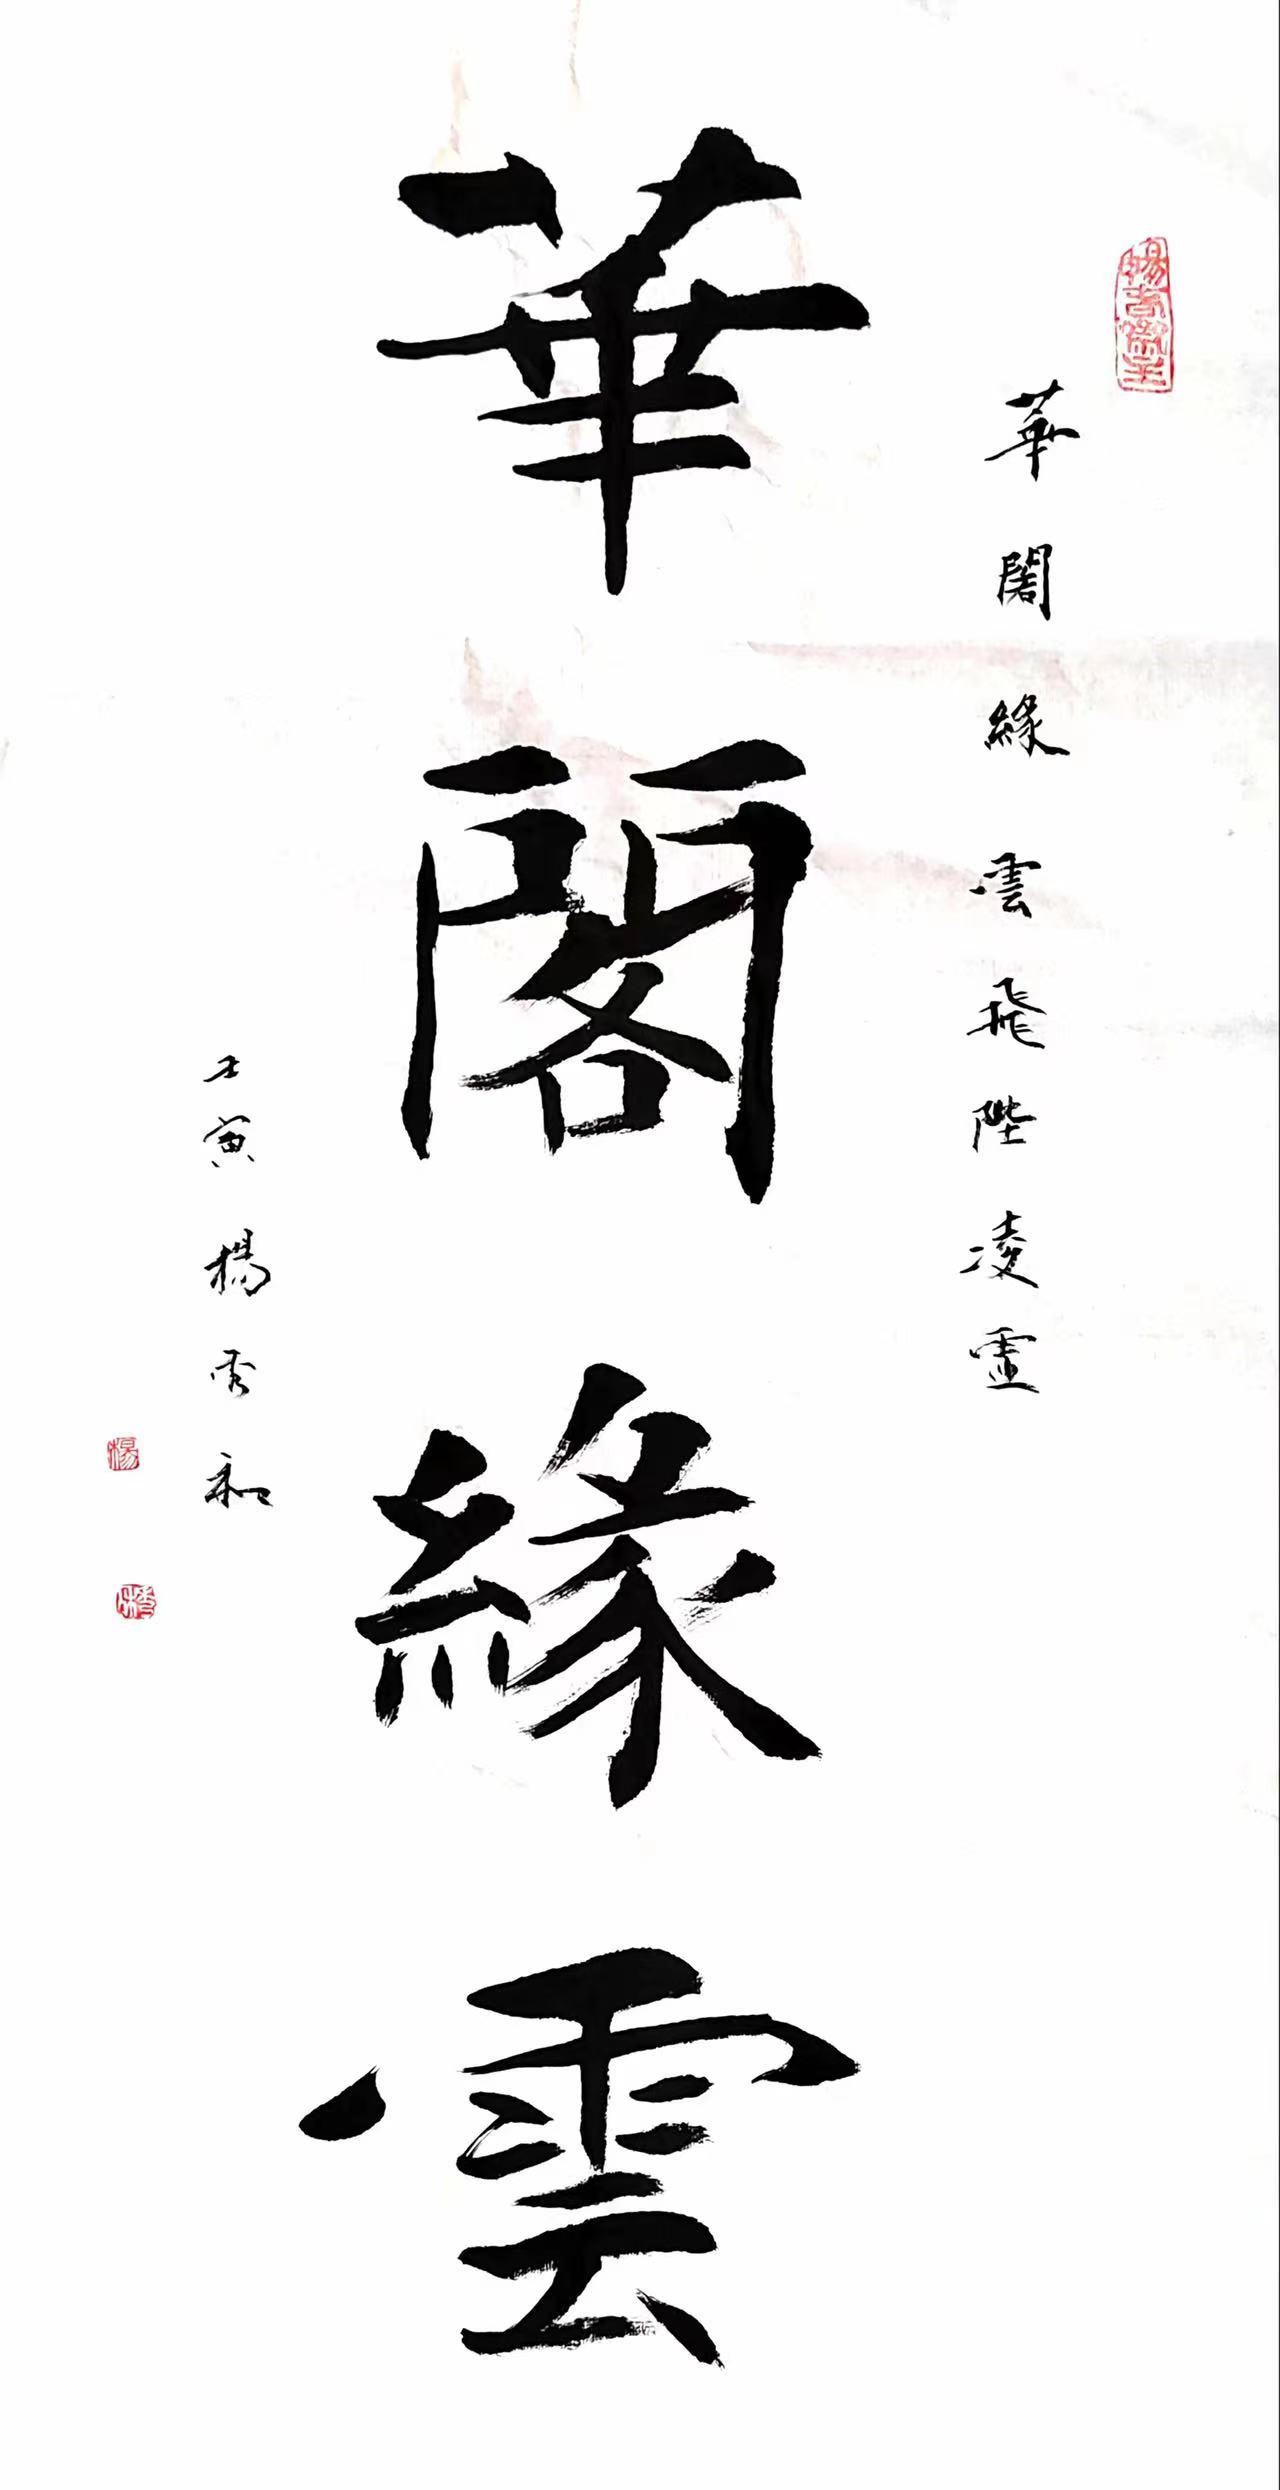 華閣緣雲飛陛凌虛
華閣緣雲
壬寅楊秀和
楊